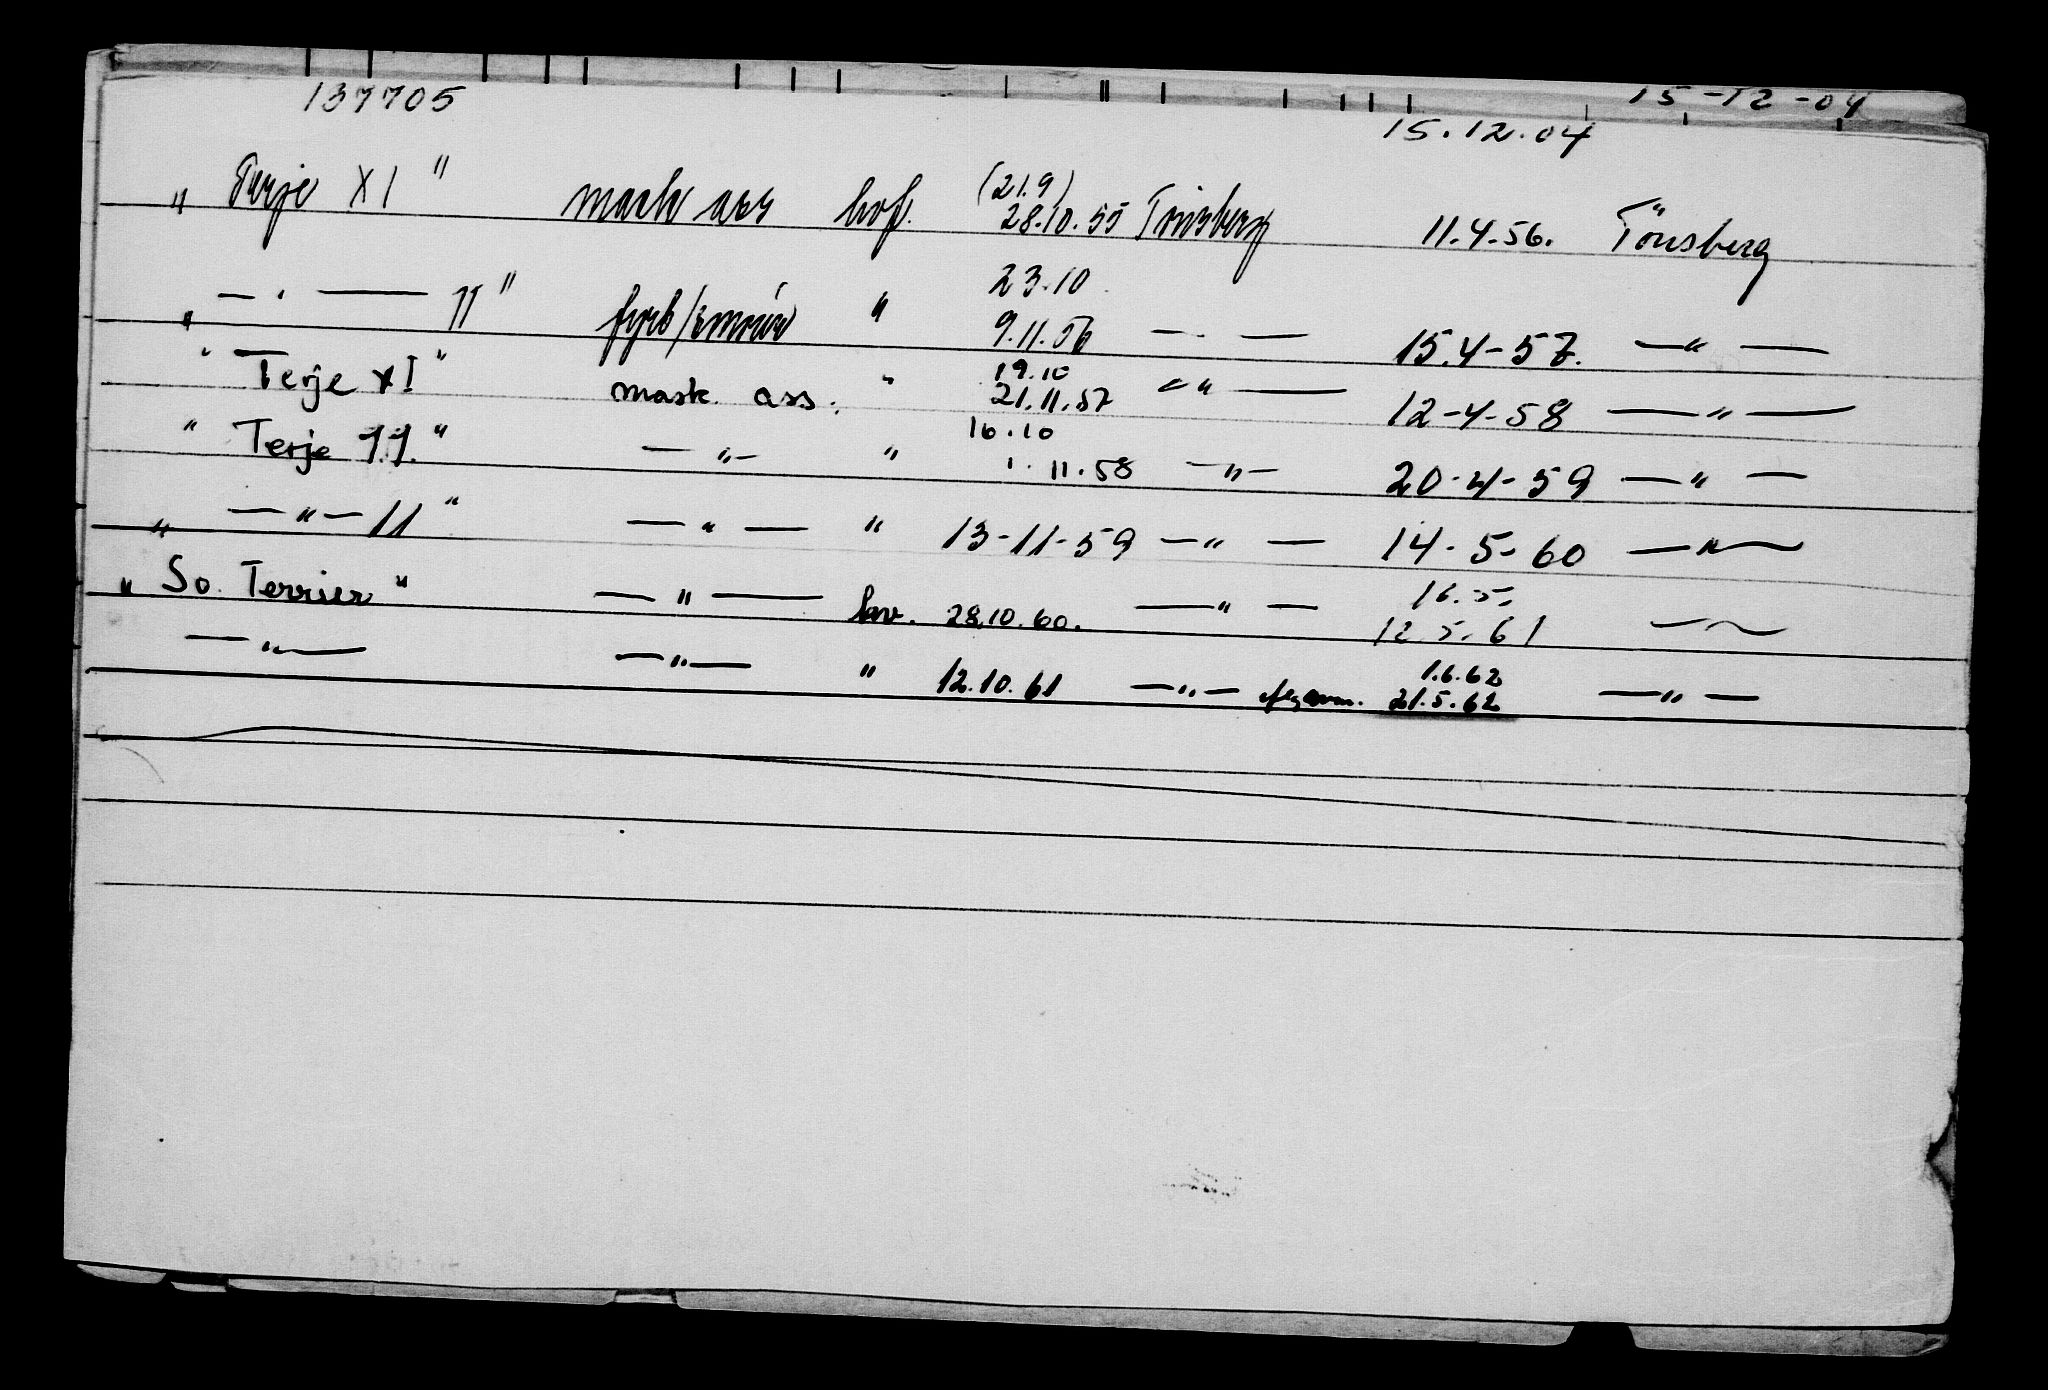 137705 15-12-04
15.12.04
" Terje XI " mask ass hvf. (21.9) 28.10.55 Tönsberg 11.4.56. Tönsberg
" — " — 11 " fyrb/smörer " 23.10 9.11.56 — " — 15.4-57. — " —
" Terje XI " mask. ass. " 19.10 21.11.57 " " — 12-4-58 — " —
" Terje 11. " — " — " 16.10 1.11.58 — " — 20-4-59 — " —
" — " — 11 " — " — " 13-11-59 — " — 14-5-60 — " —
" So. Terrier " — " — 28.10.60. — " — 16.5. 12.5.61 — " —
— " — — " — " 12.10.61 — " — 1.6.62 21.5.62 — " —